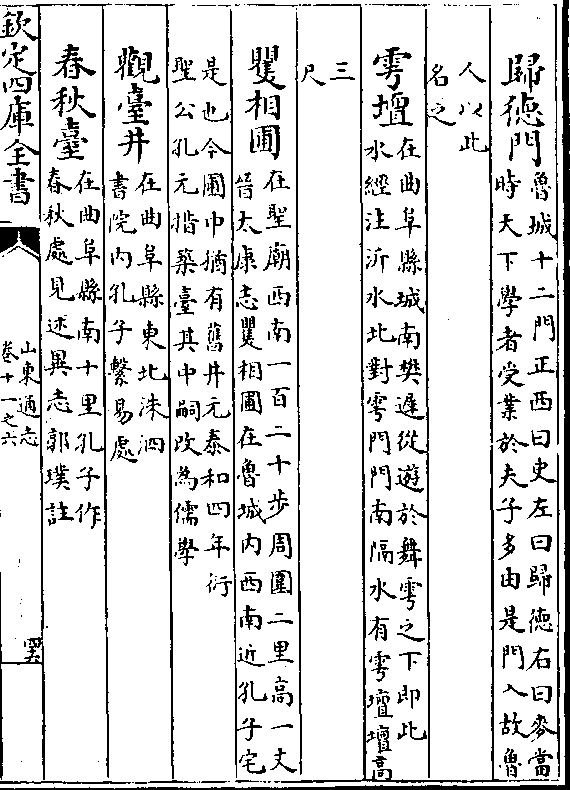 歸德門魯城十二門正西曰史左曰歸德右曰麥當
時天下學者受業於夫子多由是門入故魯
人以此
名之
雩壇在曲阜縣城南樊遲從遊於舞雩之下即此
水經注沂水北對雩門門南隔水有雩壇壇高
三
尺
矍相圃在聖廟西南一百二十步周圍二里高一丈
晉太康志矍相圃在魯城内西南近孔子宅
是也今圃中猶有舊井元泰和四年衍
聖公孔元措築臺其中嗣改為儒學
觀臺井在曲阜縣東北洙泗
書院内孔子繫易處
春秋臺在曲阜縣南十里孔子作
春秋處見述異志郭璞註
欽定四庫全書
山東通志
卷十一之六